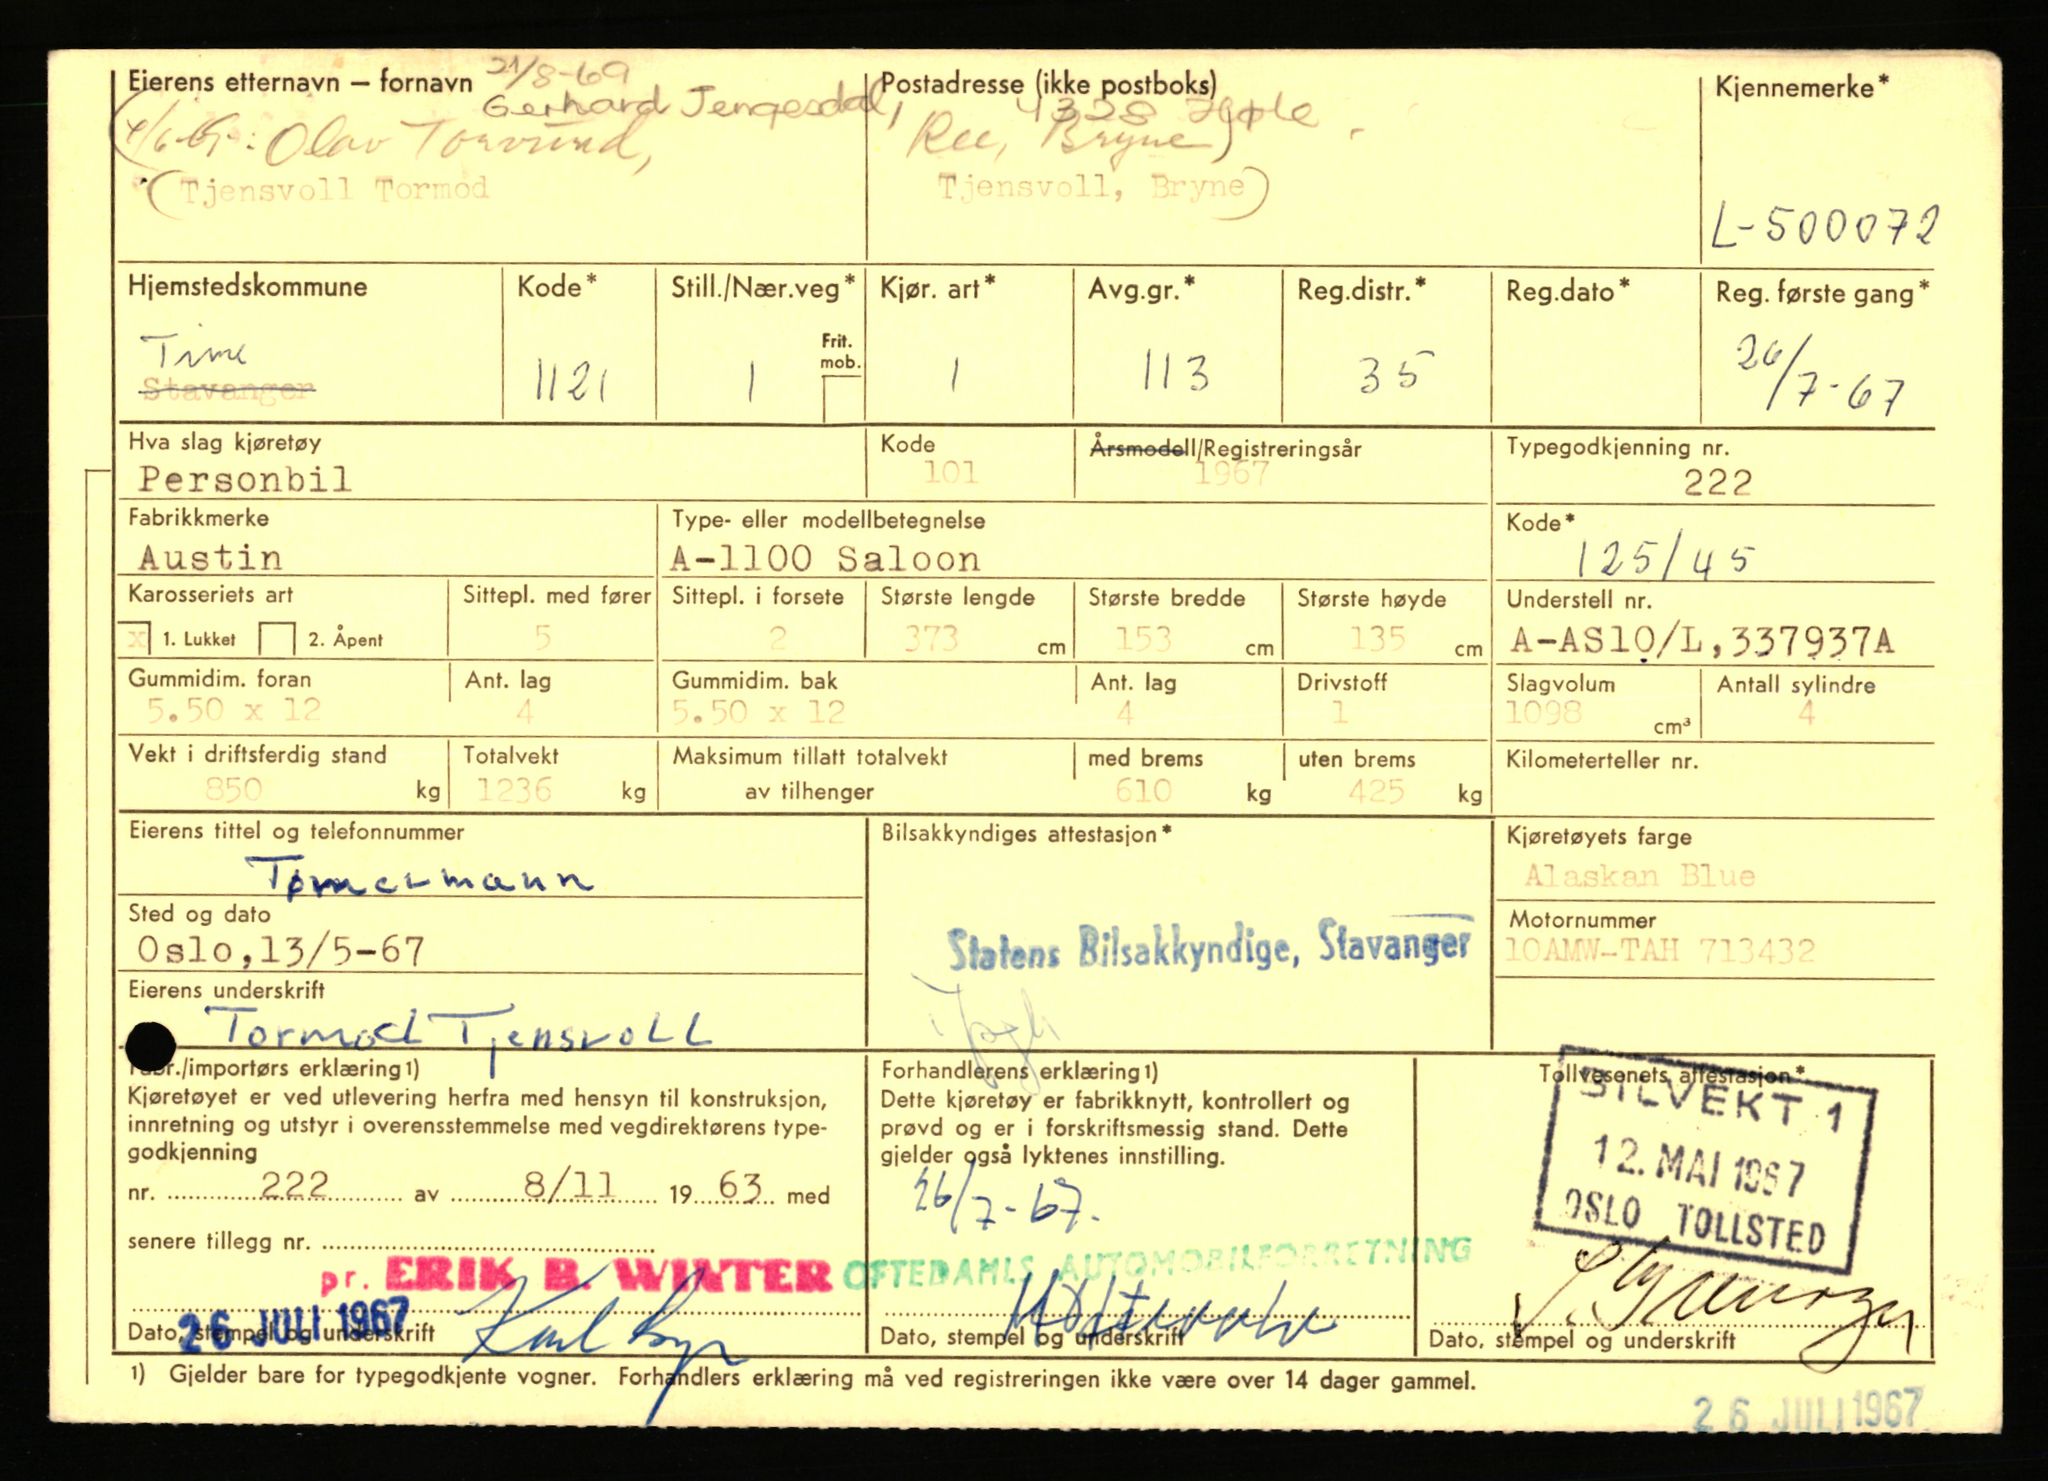 Eierens etternavn — fornavn 21/8-69 Postadresse (ikke postboks) Kjennemerke*
Gerhard Jengesdal, 4328 Høle.
(4/6-69: Olav Torvund, Ree, Bryne)
(Tjensvoll Tormod Tjensvoll, Bryne)
L-500072
Hjemstedskommune Kode* Still./Nær.veg* Kjør. art* Avg.gr.* Reg.distr.* Reg.dato* Reg. første gang*
Time Frit. mob.
Stavanger 1121 1 1 113 35 26/7-67
Hva slag kjøretøy Kode Årsmodell/Registreringsår Typegodkjenning nr.
Personbil 101 1967 222
Fabrikkmerke Type- eller modellbetegnelse Kode*
Austin A-1100 Saloon 125/45
Karosseriets art Sittepl. med fører Sittepl. i forsete Største lengde Største bredde Største høyde Understell nr.
x 1. Lukket 2. Åpent 5 2 373 cm 153 cm 135 cm A-AS10/L,337937A
Gummidim. foran Ant. lag Gummidim. bak Ant. lag Drivstoff Slagvolum Antall sylindre
5.50 x 12 4 5.50 x 12 4 1 1098 cm³ 4
Vekt i driftsferdig stand Totalvekt Maksimum tillatt totalvekt med brems uten brems Kilometerteller nr.
850 kg 1236 kg av tilhenger 610 kg 425 kg
Eierens tittel og telefonnummer Bilsakkyndiges attestasjon* Kjøretøyets farge
Tømermann Alaskan Blue
Sted og dato Motornummer
Oslo,13/5-67 Statens Bilsakkyndige, Stavanger 10AMW-TAH 713432
Eierens underskrift
Tormod Tjensvoll
Fabr./importørs erklæring1) Forhandlerens erklæring1) Tollvesenets attestasjon*
Kjøretøyet er ved utlevering herfra med hensyn til konstruksjon, Dette kjøretøy er fabrikknytt, kontrollert og BILVEKT 1
innretning og utstyr i overensstemmelse med vegdirektørens type- prøvd og er i forskriftsmessig stand. Dette 12. MAI 1967
godkjenning gjelder også lyktenes innstilling.
nr. 222 av 8/11 1963 med 26/7-67. OSLO TOLLSTED
senere tillegg nr.
pr. ERIK B. WINTER OFTEDAHLS AUTOMOBILFORRETNING
26 JULI 1967
Dato, stempel og underskrift Dato, stempel og underskrift Dato, stempel og underskrift
1) Gjelder bare for typegodkjente vogner. Forhandlers erklæring må ved registreringen ikke være over 14 dager gammel.
26 JULI 1967